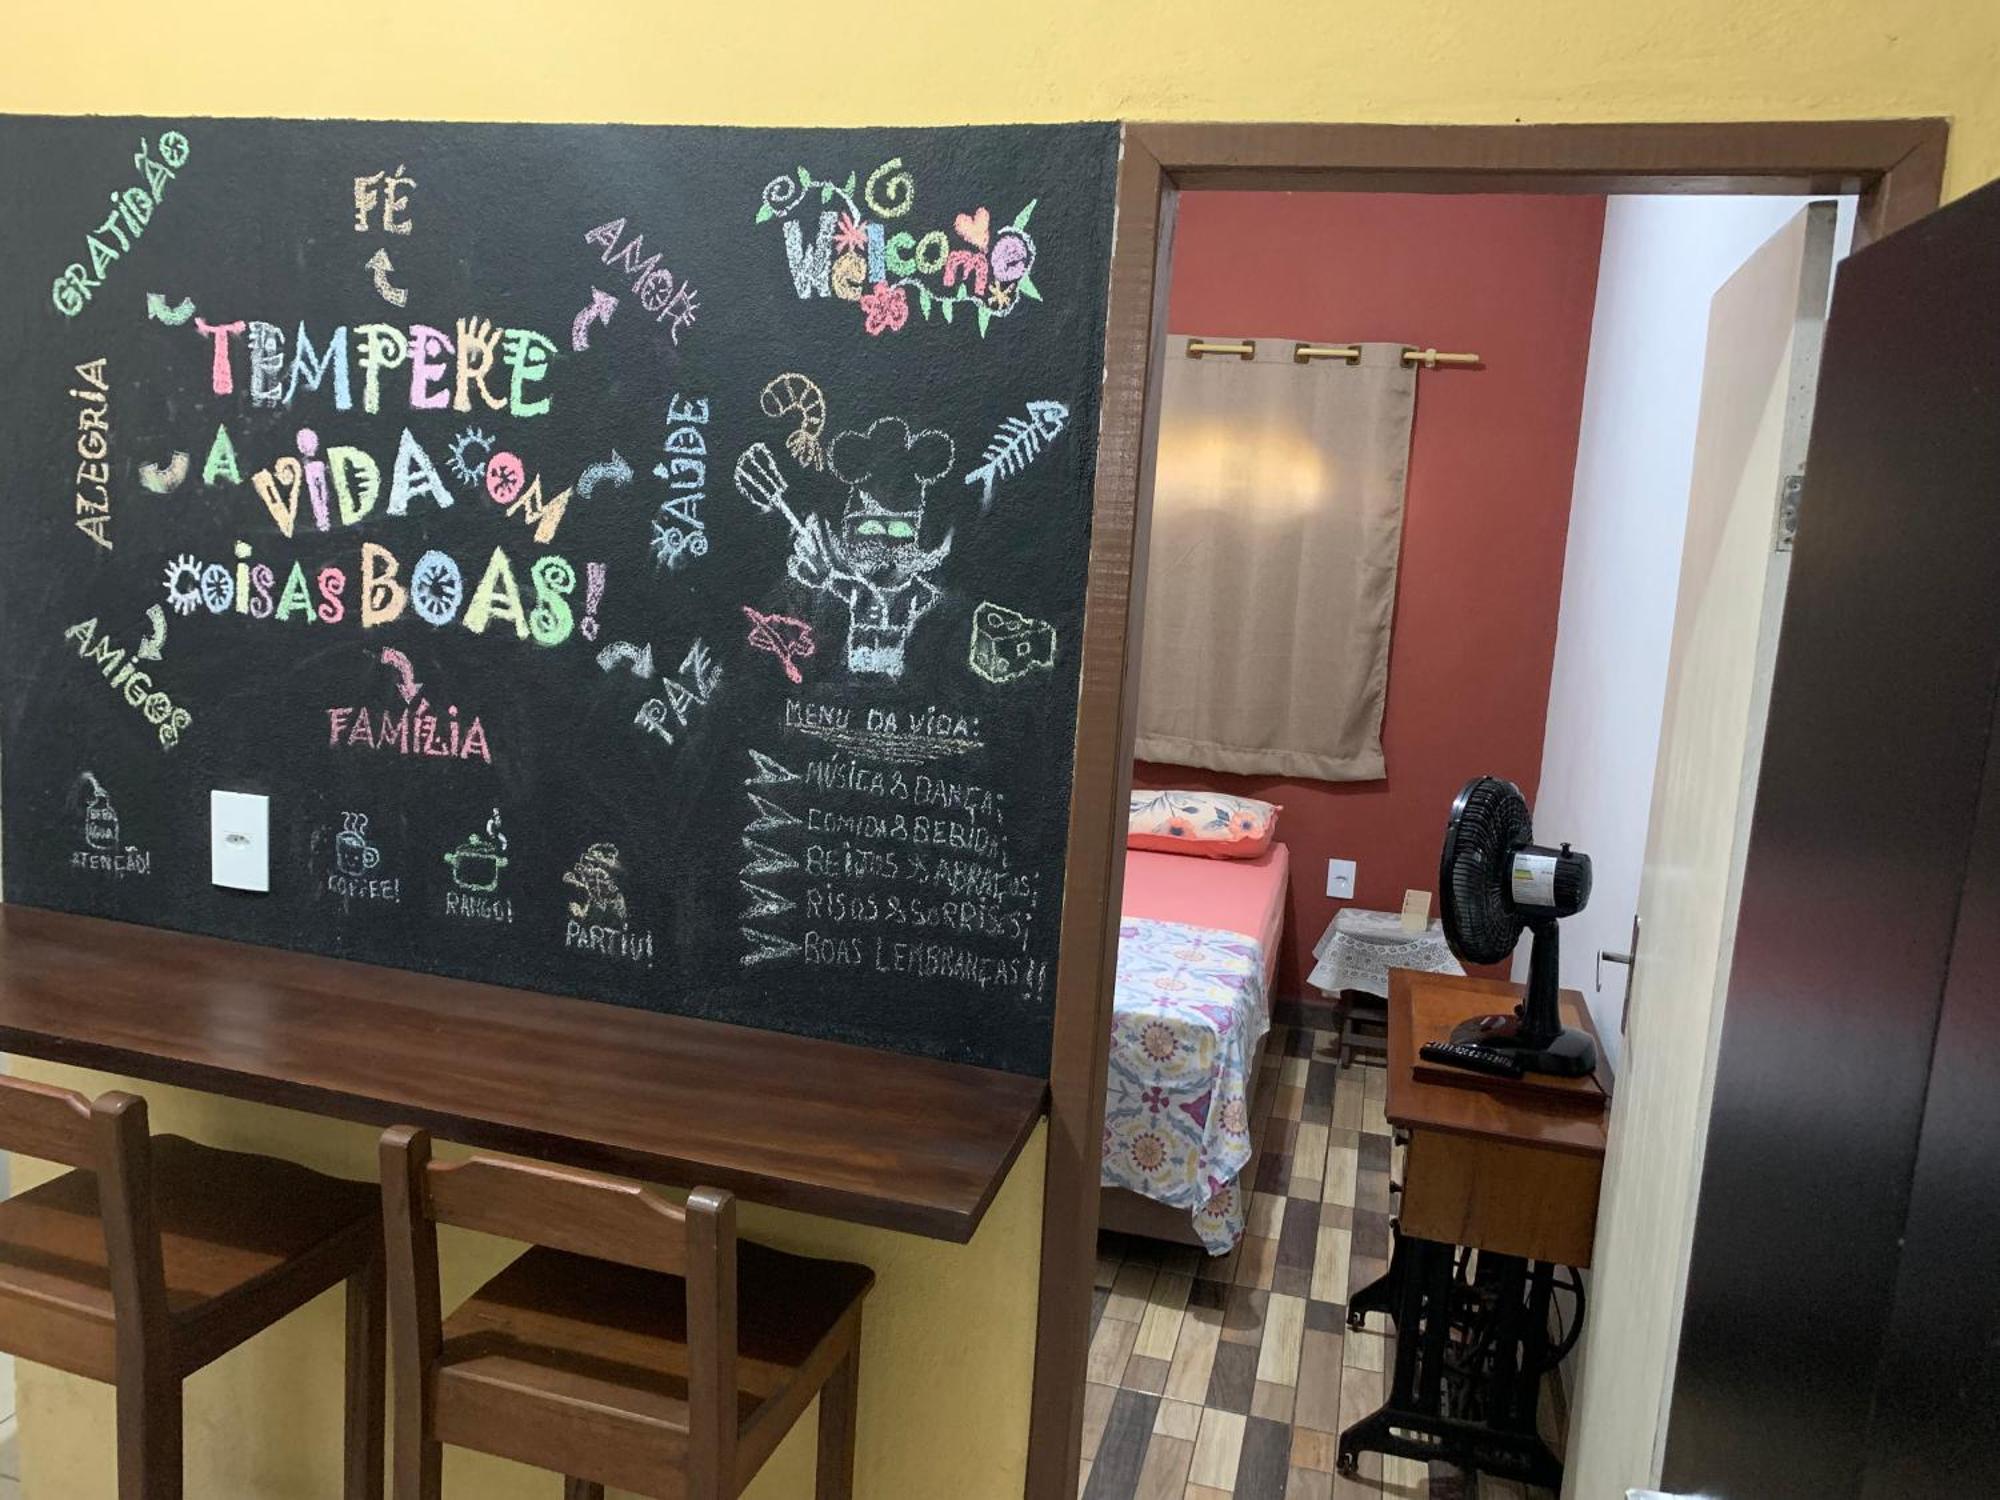 GRATIDÃO
FÉ
AMOR
Welcome
TEMPERE
A VIDA COM
COISAS BOAS!
ALEGRIA
SAÚDE
AMIGOS
FAMÍLIA
PAZ
MENU DA VIDA:
MÚSICA & DANÇA;
COMIDA & BEBIDA;
BEIJOS & ABRAÇOS;
RISOS & SORRISOS;
BOAS LEMBRANÇAS!!
BEBA
ÁGUA!
ATENÇÃO!
COFFEE!
RANGO!
PARTIU!